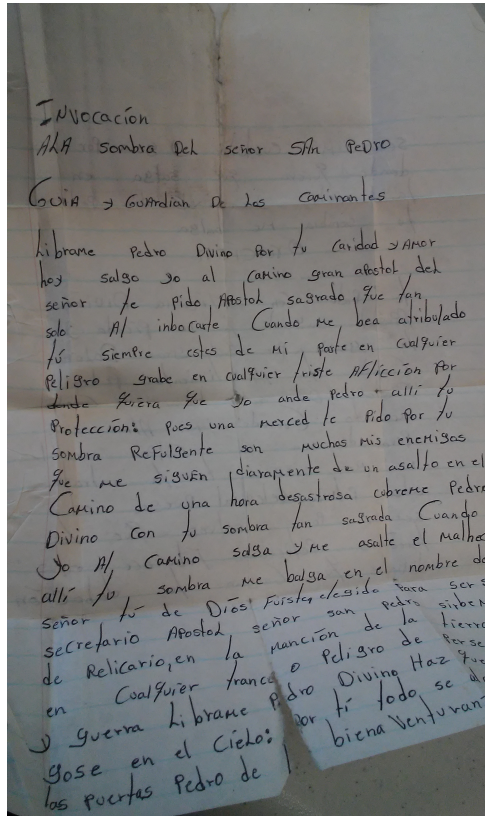 Invocación
ALA Sombra Del señor SAn PeDRO
Guia y Guardian De Los Caminantes
Librame Pedro Divino Por tu Caridad y AMor
hoy salgo yo al Camino gran apostol del
señor te Pido, Apostol sagrado, que tan
solo Al inbocarte Cuando me bea atribulado
tú siempre estes de Mi parte en Cualquier
Peligro grabe en cualquier triste Aflicción Por
donde quiera que yo ande Pedro alli tu
Protección: pues una merced te Pido Por tu
sombra Refulgente son muchas Mis enemigas
que me siguen diaramente de un asalto en el
Camino de una hora desastrosa cubreme Pedro
Divino Con tu Sombra tan sagrada Cuando
yo Al Camino salga y Me asalte el Malhe
alli tu sombra me balga en el nombre de
señor tú de Dios Fuiste elegido Para ser s
secretario Apostol señor san Pedro sirbem
de Relicario, en la manción de la tierra
en Cualquier trance o Peligro de Perse
y guerra Librame Pedro Divino Haz que
gose en el Cielo: Por ti todo se
las puertas Pedro de biena Venturan